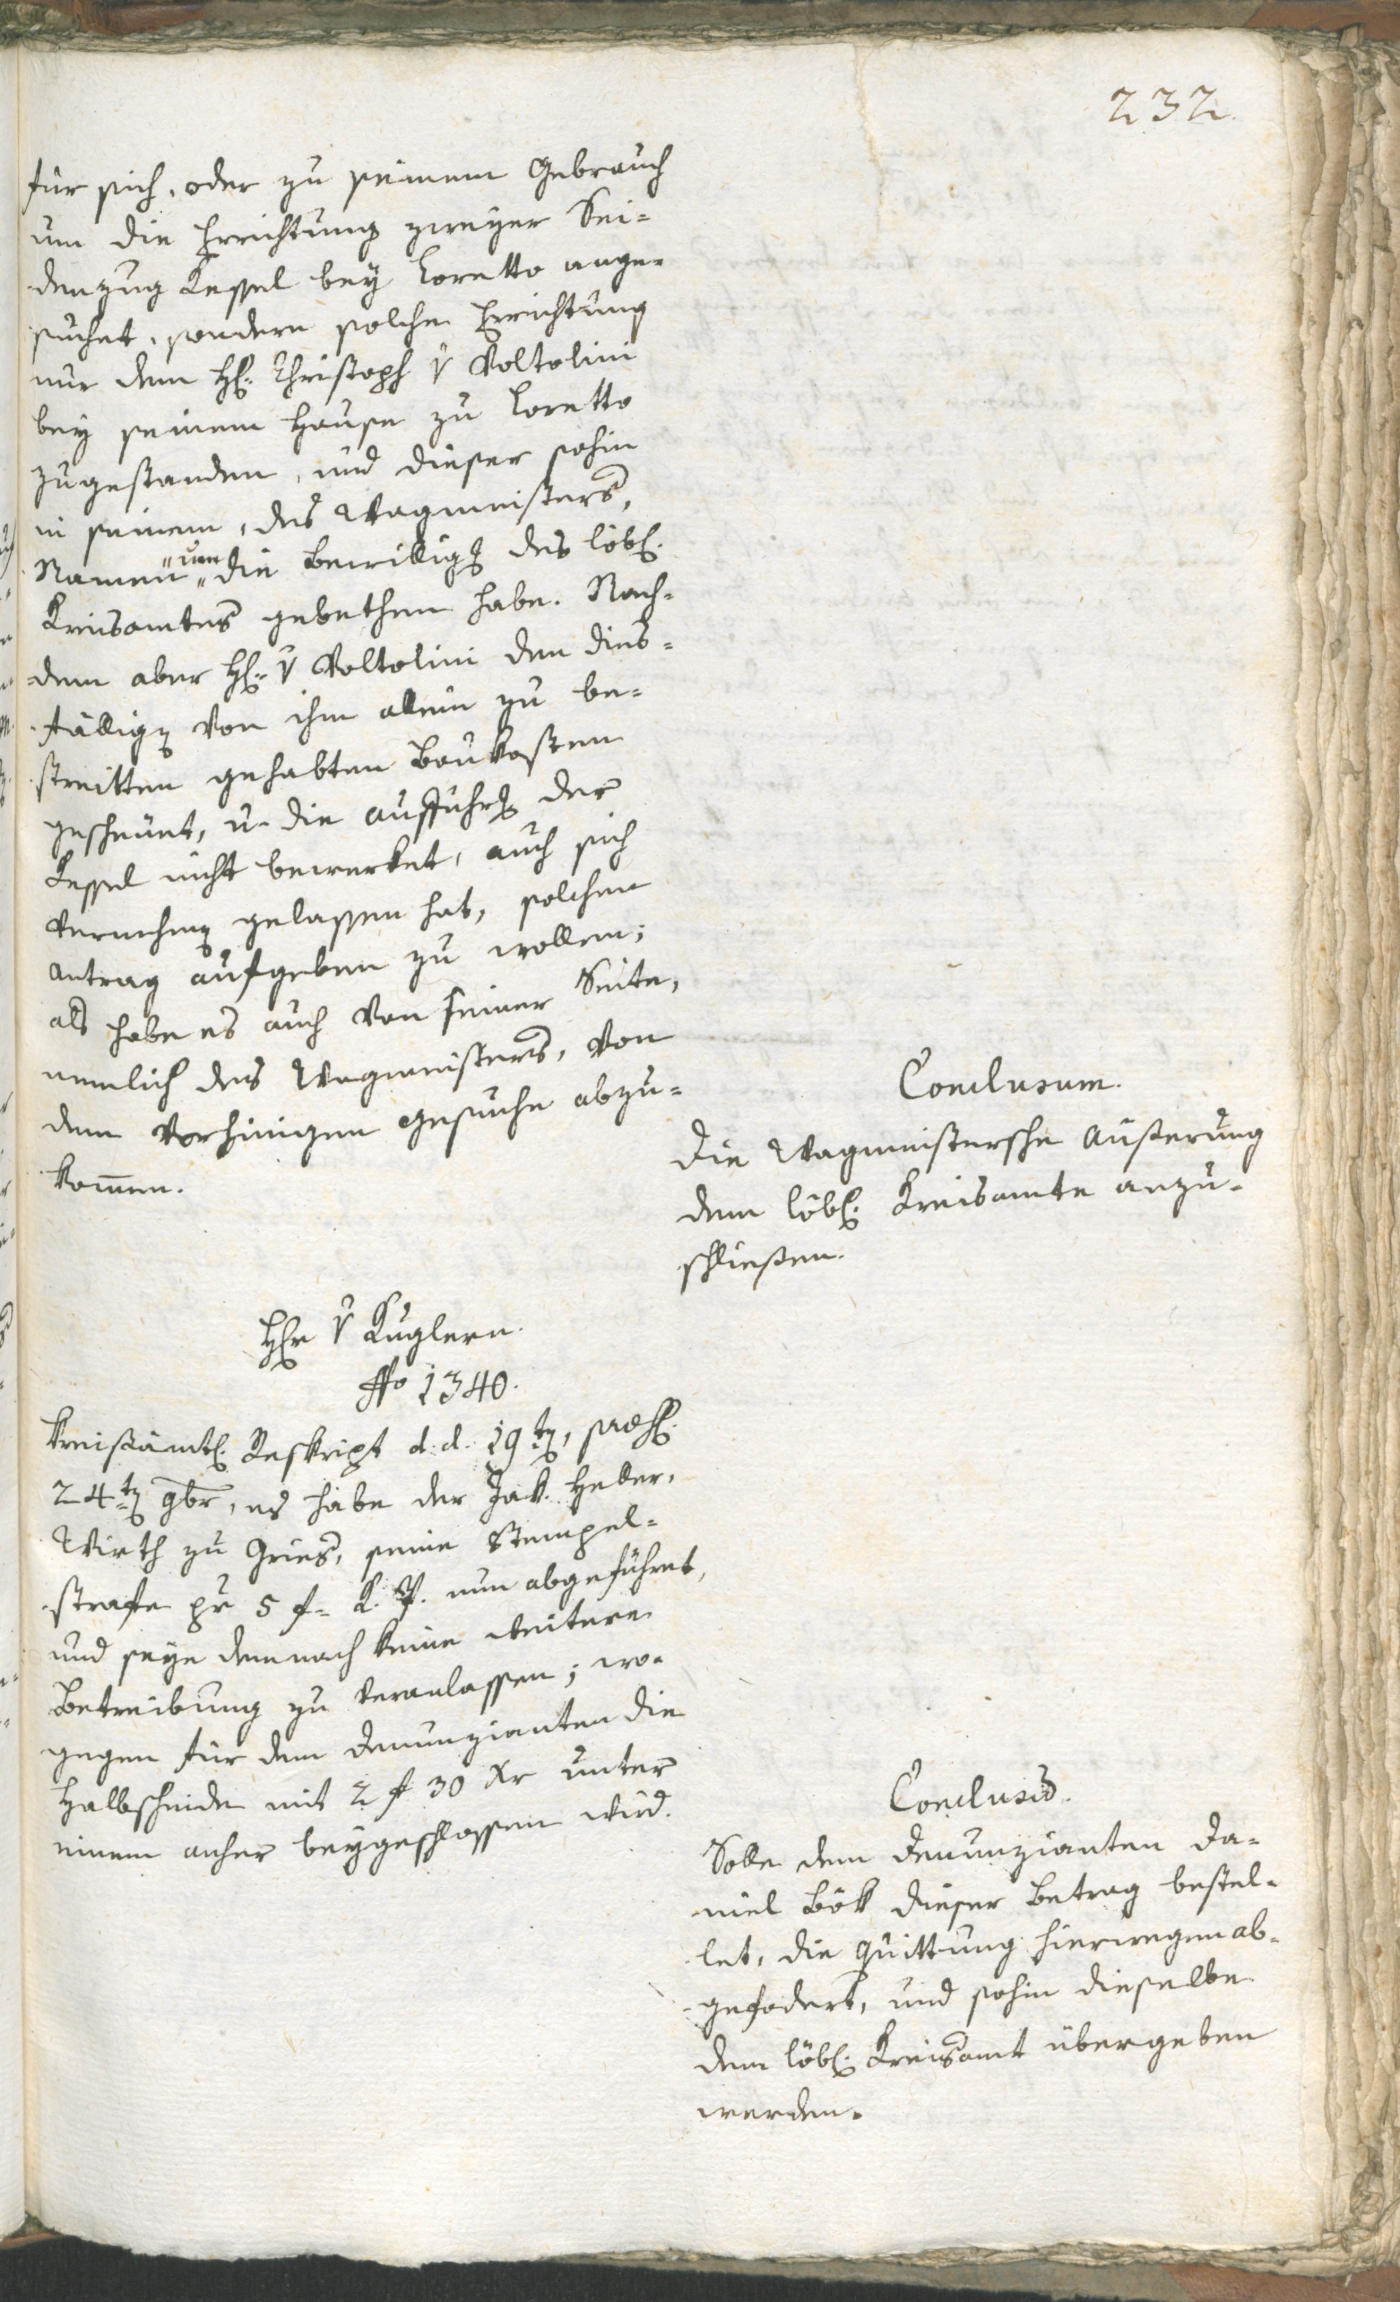 232.
für sich, oder zu seinem Gebrauch
um die Errichtung zweyer Sei-
denzug Kessel bey Loretto ange-
suchet, sondern solche Errichtung
nur dem H. Christoph v Voltolini
bey seinem Hause zu Loretto
zugestanden, und dieser sohin
in seinem, des Wagmeisters,
Namen um die Bewilligg des löbl.
Kreisamtes gebethen habe. Nach-
dem aber H. v Voltolini den dies-
fällig von ihm allein zu be-
streitten gehabten Baukosten
gescheuet, u. die Aufführg der
Kessel nicht bewerket, auch sich
vernehmen gelassen hat, solchen
Antrag aufgeben zu wollen;
als habe es auch von seiner Seite,
nemlich des Wagmeisters, von
dem vorhinigen Gesuche abzu-
kommen.
Conclusum.
Die Wagmeistersche Äußerung
dem löbl. Kreisamte anzu-
schließen.
Hr v Kuglern.
No 1340.
Kreisämtl. Reskript d. d. 19ten, praes.
24ten 9br, es habe der Jak. Heller,
Wirth zu Gries, seine Stempel-
strafe pr 5 f. K. M. nun abgeführet,
und seye demnach keine weitere
Betreibung zu veranlassen; wo-
gegen für dem Denunzianten die
Halbscheide mit 2 f 30 Xr unter
einem anher beygeschlossen wird.
Conclusum.
Solle dem Denunzianten Da-
niel Bök dieser Betrag bestel-
let, die Quittung hierwegen ab-
gefodert, und sohin dieselbe
dem löbl. Kreisamt übergeben
werden.